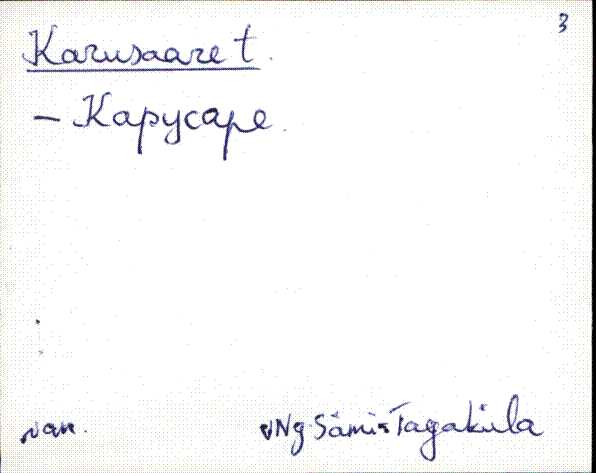 3
Karusaare t.
– Карусаре.
vNg Sämi-Tagaküla